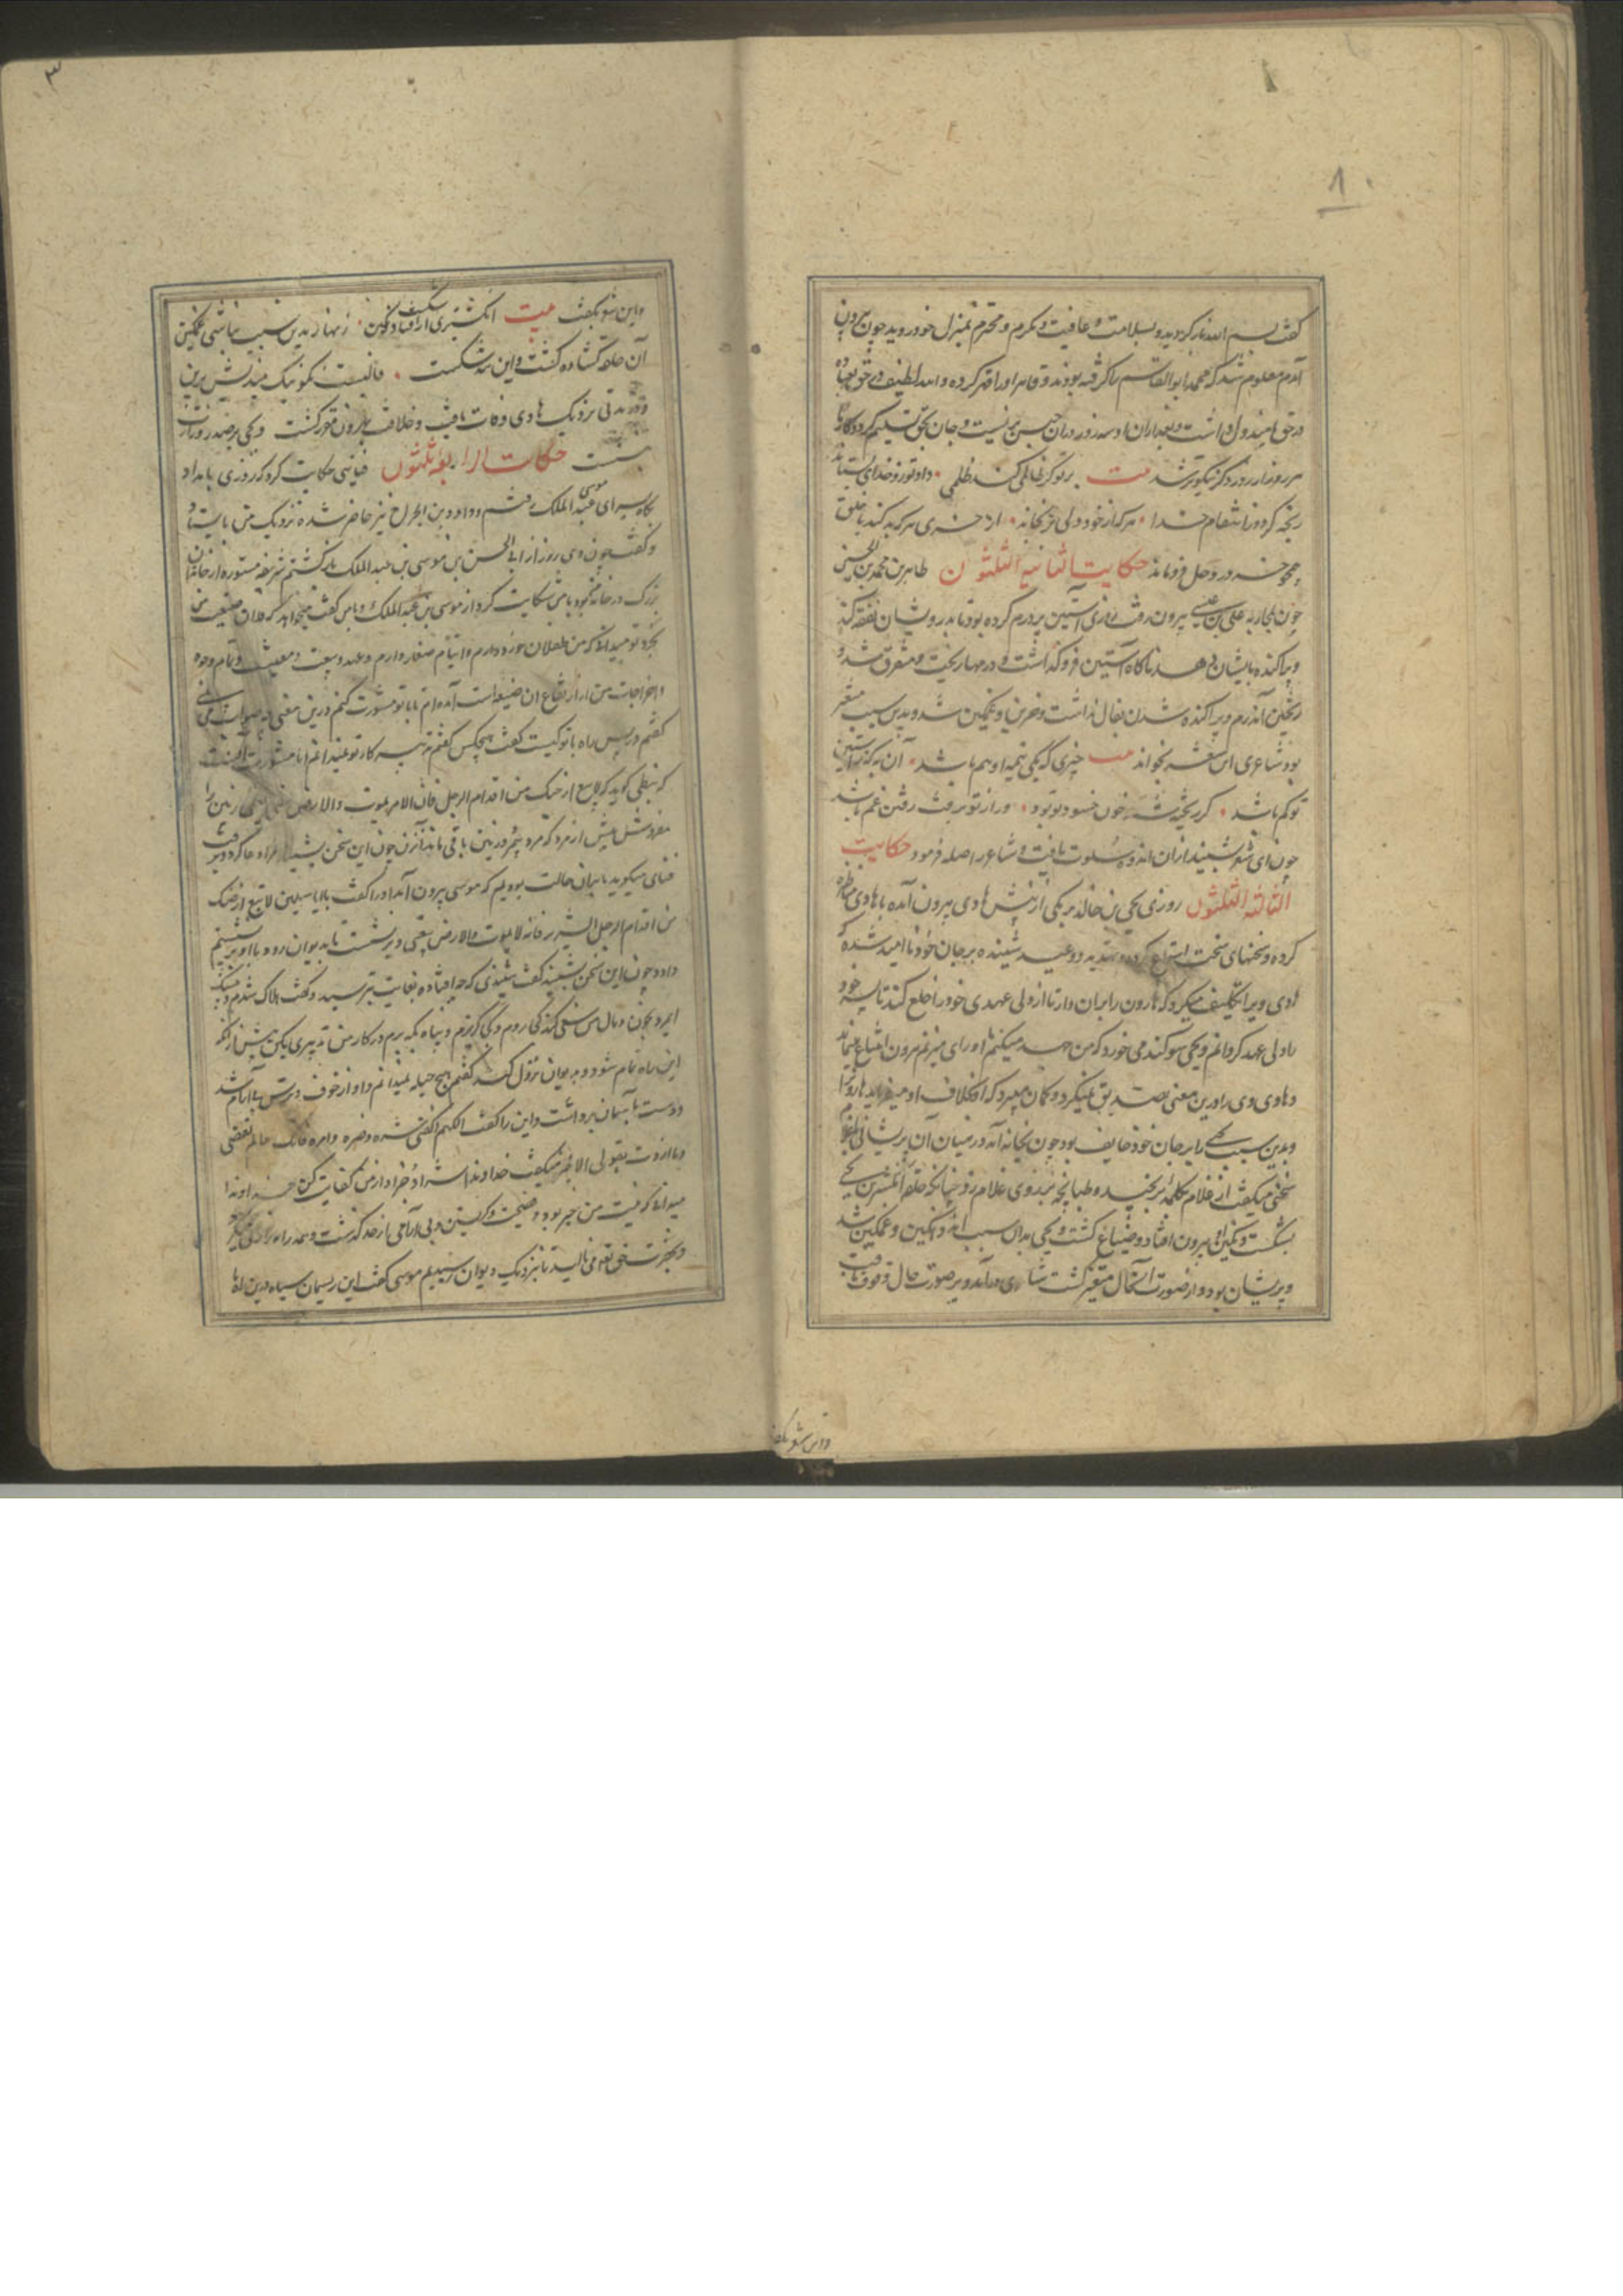 ۱
کفت بسم الله باز کردید و بسلامت و عافیت و مکرم و محترم بمنزل خود روید چون بیرون
آمدم معلوم شد که محمد ابوالقاسم را کرفته بودند و قاهر او را قهر کرده و الله لطیف در حق بنده
در حق مبذول داشت و بعد ازان او سه روز دران حبس بزیست و جان بحق تسلیم کرد و کار ما
هر روز از روز دکر نیکوتر شد بیت بر تو کر ظالمی کند ظلمی داد تو زو خدای بستاند
رنجه کردد ز انتقام خدا هر که از خود دلی برنجاند از خری هر که بد کند با خلق
همچو خر در وحل فرو ماند حکایت الثانیه الثلثون طاهر بن محمد بن الحسین
چون بمحاربه علی بن عیسی بیرون رفت روزی آستین پر درم کرده بود تا بدرویشان نفقه کند
و پراکنده بایشان دهد ناکاه آستین فرو کذاشت و درمها ریخت و متفرق شد و
ریختن آن درم و پراکنده شدن بفال نداشت و حزین و غمکین شد و بدین سبب متغیر
بود شاعری این شعر بخواند بیت چیزی که یکی نیمه او هم باشد آن به که در آستین
تو کم باشد کر ریخته شد خون حسود تو بود ور از تو برفت رفتن غم باشد
چون این شعر بشنید ازان اندوه سلوت یافت و شاعر را صله فرمود حکایت
الثالثه الثلثون روزی یحیی بن خالد برمکی از پیش هادی بیرون آمده با هادی مناظره
کرده و سخنهای سخت استماع کرده و تهدید و وعید شنیده بر جان خود ناامید شده که
هادی ویرا تکلیف میکرد که هارون را بران دارد تا از ولی عهدی خود را خلع کند تا پسر خود
را ولی عهد کردانم و یحیی سوکند می خورد که من جهد میکنم او رای میزنم هرون امتناع مینماید
و هادی وی را درین معنی تصدیق نمیکرد و کمان میبرد که او بخلاف او میفرماید هارون را
و بدین سبب یحیی را بر جان خود خایف بود چون بخانه آمد در میان آن پریشانی با غلام
سخنی میکفت از غلام بکلمه برنجید و طپانچه بر روی غلام زد چنانکه حلقه انکشترین یحیی
بشکست و نکین او بیرون افتاد و ضیاع کشت و یحیی بدان سبب اندوهکین و غمکین شد
و پریشان بود و از صورت آنحال متغیر کشت شاعری درآمد و بر صورت حال وقوف یافت
و این شعر بکفت
۳
و این شعر بکفت بیت انکشتری ار شکست و افتاد نکین زنهار بدین سبب نباشی غمکین
آن حلقه کشاده کشت و این بند شکست فالیست نکو نیک میندیش برین
و در مدتی نزدیک هادی وفات یافت و خلافت بهارون مقرر کشت و یحیی بر صدر وزارت
بنشست حکایت الرابعه ثلثون فیاضی حکایت کرد که روزی بامداد
پکاه بسرای موسی عبد الملک رفتم و داود بن الجراح نیز حاضر شده نزدیک من بایستاد
و کفت چون دی روز از ابی الحسن بن موسی بن عبد الملک باز کشتم شریفه مستوره از خاندان
بزرک در خانه خود یافتم شکایت کرد از موسی بن عبد الملک و با من کفت میخواهد که فلان ضیعت من
بخرد و تو میدانی که من طفلان خورد دارم و ایتام صغار دارم و عمده وسعت و معیشت و تمام وجوه
و اخراجات من از ارتفاع ان ضیعه است آمده ام تا با تو مشورت کنم درین معنی چه صواب می بینی
کفتم درین راه با تو کیست کفت هیچکس کفتم تدبیر کار تو نمیدانم اما مشورت آنست
که نبطی کوید که لا تبع ارضک من اقدام الرجل فان الامر یموت والارض تبقی یعنی زمین را
مفروش بپیش از مرد که مرد بمیرد و زمین باقی ماند آن زن چون این سخن بشنید مرا دعا کرد و برفت
فیاض میکوید ما بران حالت بودیم که موسی بیرون آمد او را کفت یا ابا سلیمن لا تبع ارضک
من اقدام الرجل الشریر فانه لا یموت والارض تبقی و برنشست تا بدیوان رود و ما با او برنشستیم
داود چون این سخن بشنید کفت شنیدی که چه افتاده بغایت بترسید و کفت هلاک شدم و میبیند
امیر بخون و مال من سعی کند کجا روم و کجا کریزم و پناه بکه برم در کار من تدبیری بکن پیش از آنکه
این راه تمام شود و بدیوان نزول کند کفتم هیچ حیله نمیدانم و او از خوف و ترس بی آرام شد
و دست بآسمان برداشت و این را کفت اللهم اکفنی شره و ضره و امره فانک عالم بقصتی
و ما اردت بقولی الا الخیر میکفت خداوندا شر او و ضر او از من کفایت کن خداوندا
میدانی که نیت من خیر بود و نصیحت و کریستن و بی آرامی از حد کذشت و همه راه زاری میکرد
و بحضرت حق تعالی می نالید تا بنزدیک دیوان رسیدیم موسی کفت این ریسمان سیاه درین راه